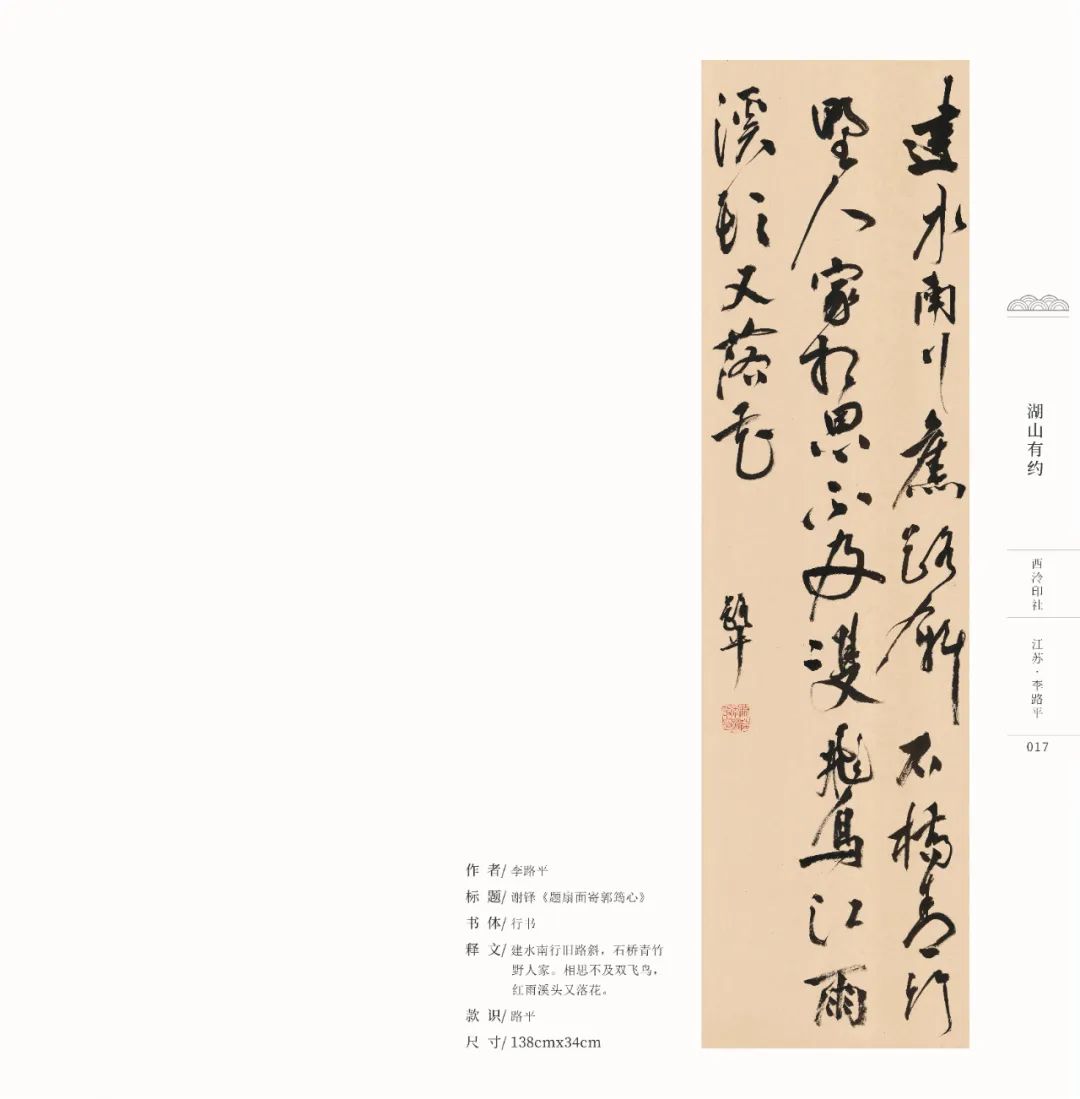 建水南行舊路斜石橋青竹
野人家相思不及雙飛鳥江雨
溪頭又落花
路平
湖山有约
西泠印社
江苏·李路平
017
作 者/ 李路平
标 题/ 谢铎《题扇面寄郭筠心》
书 体/ 行书
释 文/ 建水南行旧路斜，石桥青竹
野人家。相思不及双飞鸟，
红雨溪头又落花。
款 识/ 路平
尺 寸/ 138cmx34cm